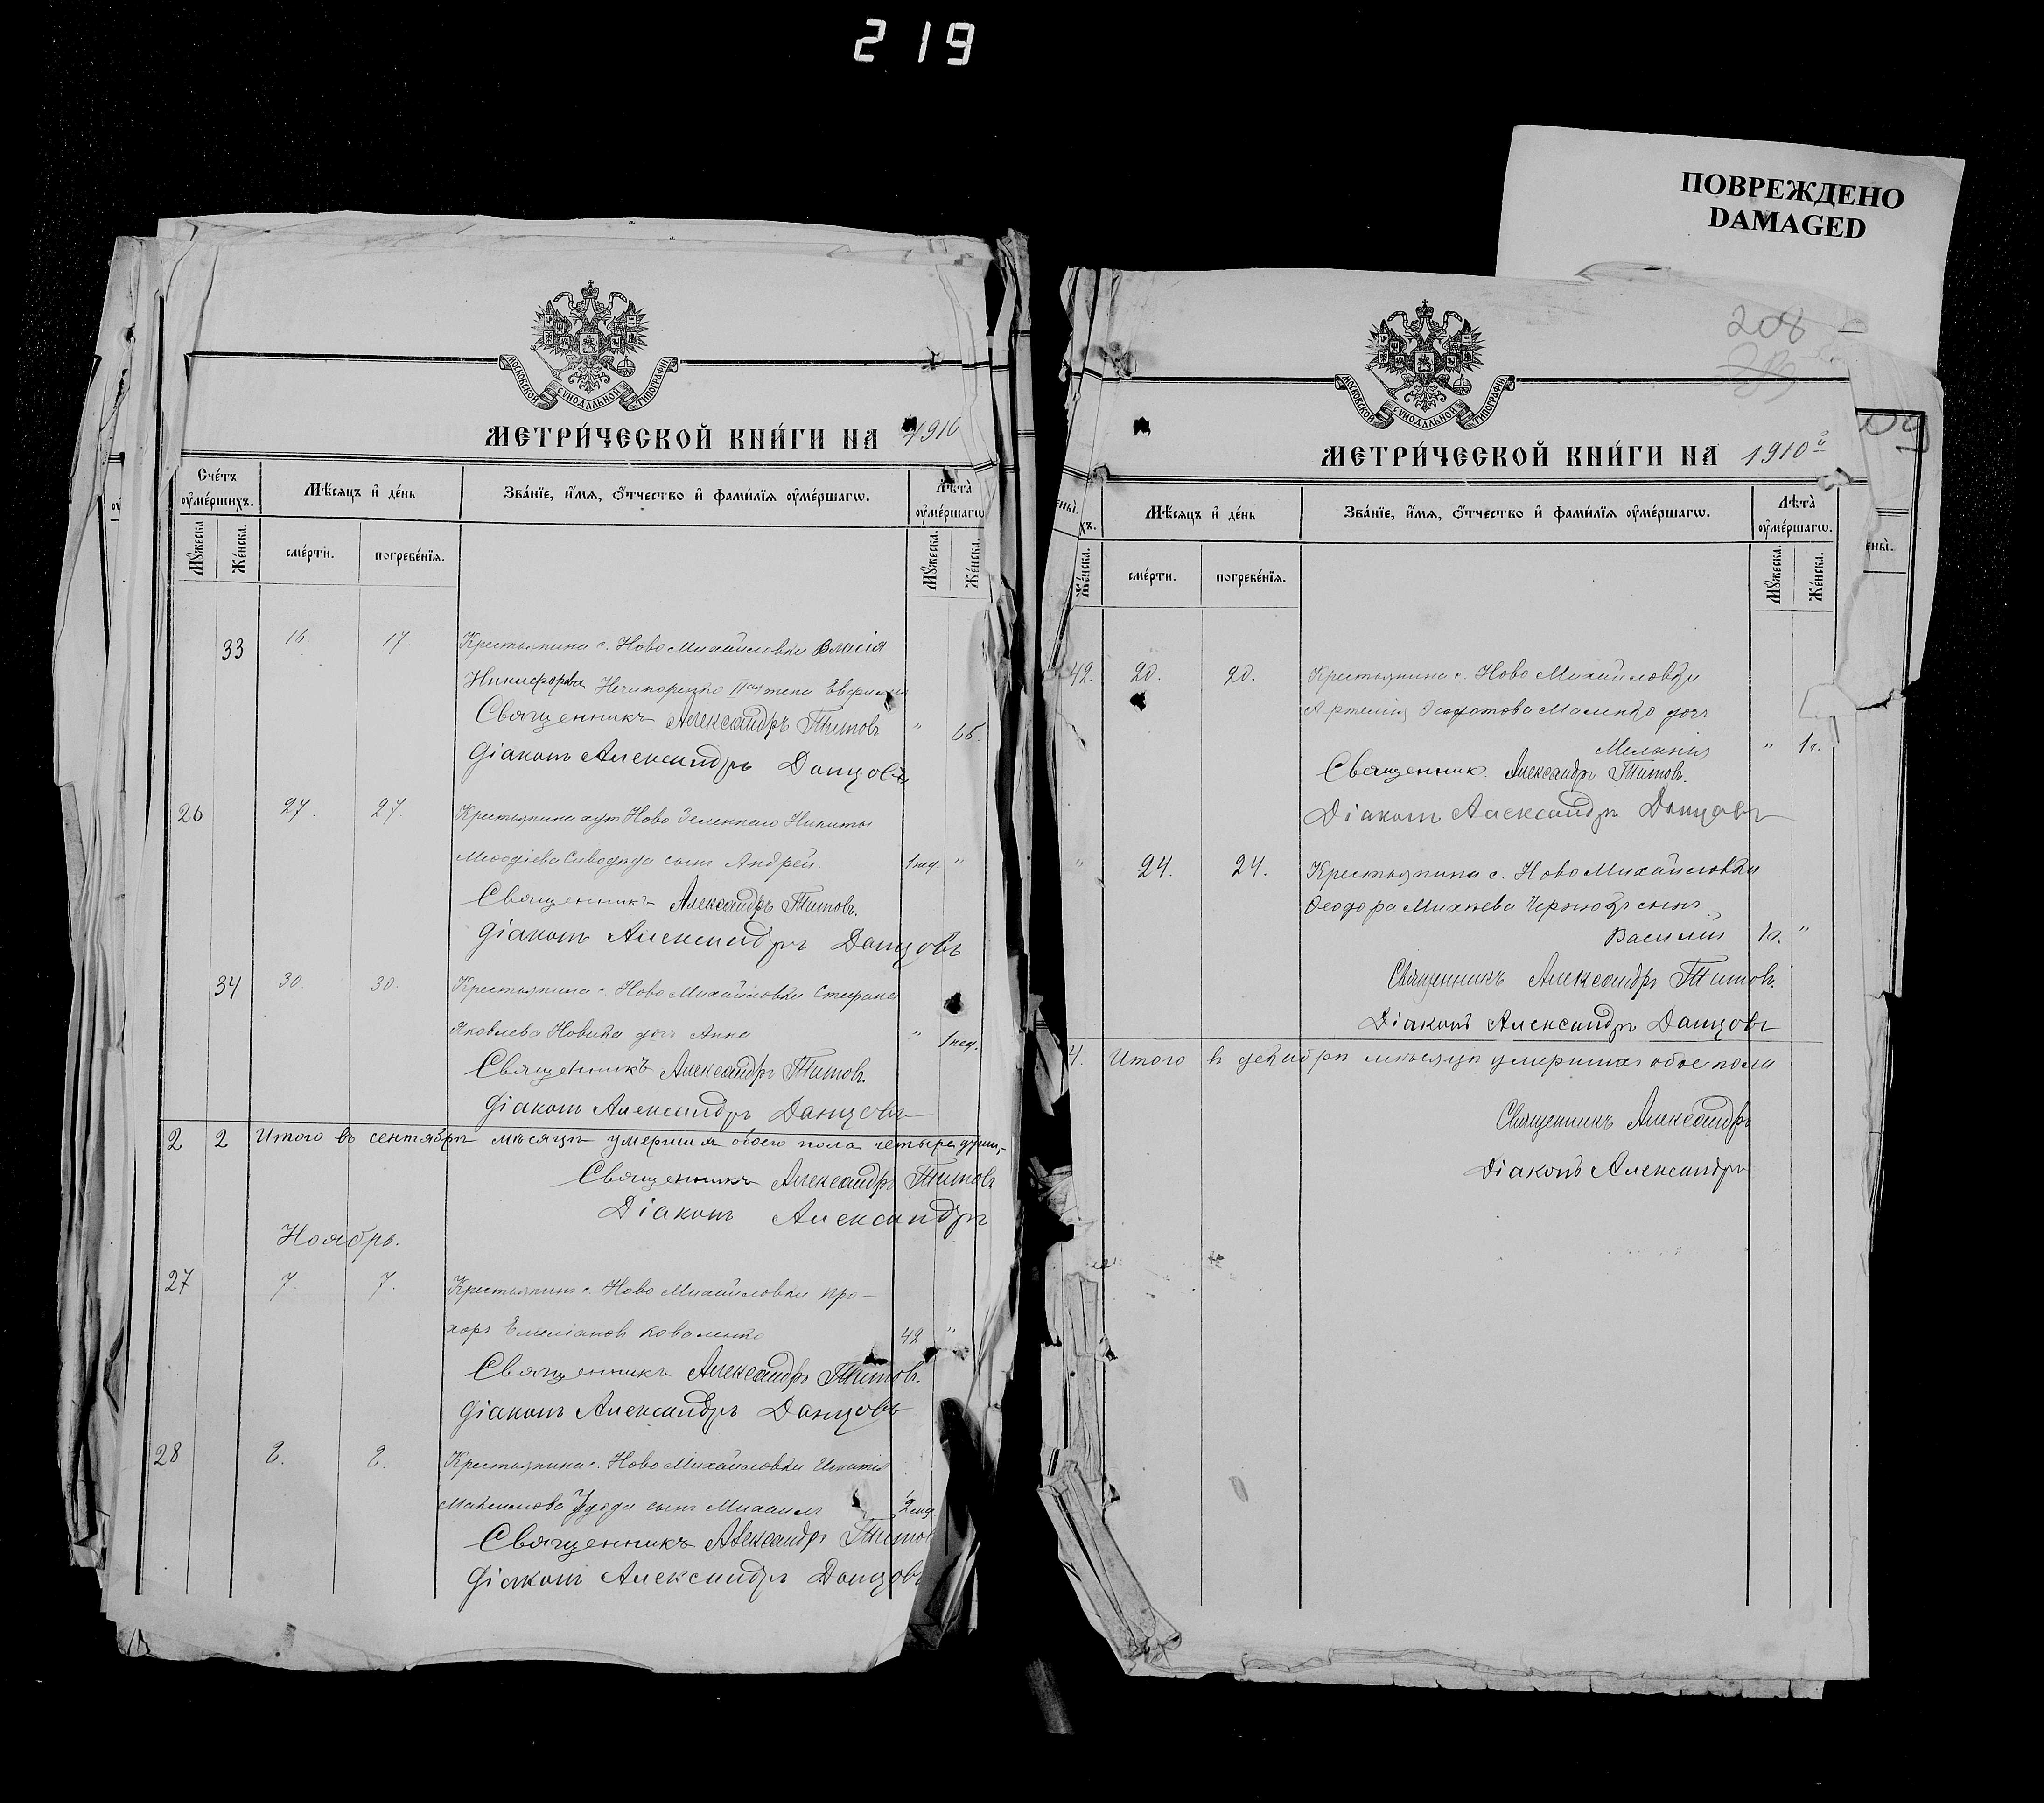 219
ПОВРЕЖДЕНО
DAMAGED
МОСКОВСКОЙ СѴНОДАЛЬНОЙ ТИПОГРАФІИ
МЕТРИ́ЧЕСКОЙ КНИ́ГИ НА 1910
Счéтъ ᲂу҆мéршихъ.
Мѣ́сяцъ и҆ дéнь
Звáнїе, и҆́мѧ, ѻ҆́тчество и҆ фамѝлїѧ ᲂу҆мéршагѡ.
Лѣ́та ᲂу҆мéршагѡ
Мꙋ́жеска.
Жéнска.
смéрти.
погребéнїѧ.
Мꙋ́жеска.
Жéнска.
33 16. 17. Крестьянина с. Ново Михайловки Власія
Никифорова жена Евфимія
Священникъ Александръ Титовъ " 66.
Діаконъ Александръ Данцовъ
26 27. 27. Крестьянина хут. Ново Никиты
Меѳодіева сынъ Андрей. 1 нед. "
Священникъ Александръ Титовъ.
Діаконъ Александръ Данцовъ
34 30 30. Крестьянина с. Ново Михайловки Стефана
Яковлева Новика дочь Анна " 1 нед.
Священникъ Александръ Титовъ.
Діаконъ Александръ Данцовъ
2 2 Итого въ сентябрѣ мѣсяцѣ умерших обоего пола четыре души,
Священникъ Александръ Титовъ
Діаконъ Александръ
Ноябрь.
27 7. 7. Крестьянинъ с. Ново Михайловки Про-
хоръ Емеліановъ Коваленко 42 "
Священникъ Александръ Титовъ.
Діаконъ Александръ Данцовъ
28 8. 8. Крестьянина с. Ново Михайловки Игнатія
Максимова сынъ Михаилъ
Священникъ Александръ Титов
Діаконъ Александръ Данцовъ
208
МОСКОВСКОЙ СѴНОДАЛЬНОЙ ТИПОГРАФІИ
МЕТРИ́ЧЕСКОЙ КНИ́ГИ НА 1910 г
Мѣ́сяцъ и҆ дéнь
Звáнїе, и҆́мѧ, ѻ҆́тчество и҆ фамѝлїѧ ᲂу҆мéршагѡ.
Лѣ́та ᲂу҆мéршагѡ.
Жéнска.
смéрти.
погребéнїѧ.
Мꙋ́жеска.
Жéнска.
42. 20. 20. Крестьянина с. Ново Михайловки
Артемія Ѳеодотова дочь
Меланія " 1 г.
Священник Александръ Титовъ.
Діаконъ Александръ Данцовъ
" 24. 24. Крестьянина с. Ново Михайловки
Ѳеодора Михеева сынъ
Василій 1 г. "
Священникъ Александръ Титовъ.
Діаконъ Александръ Данцовъ
4. Итого въ декабрѣ мѣсяцѣ умершихъ обое пола
Священникъ Александръ
Діаконъ Александръ